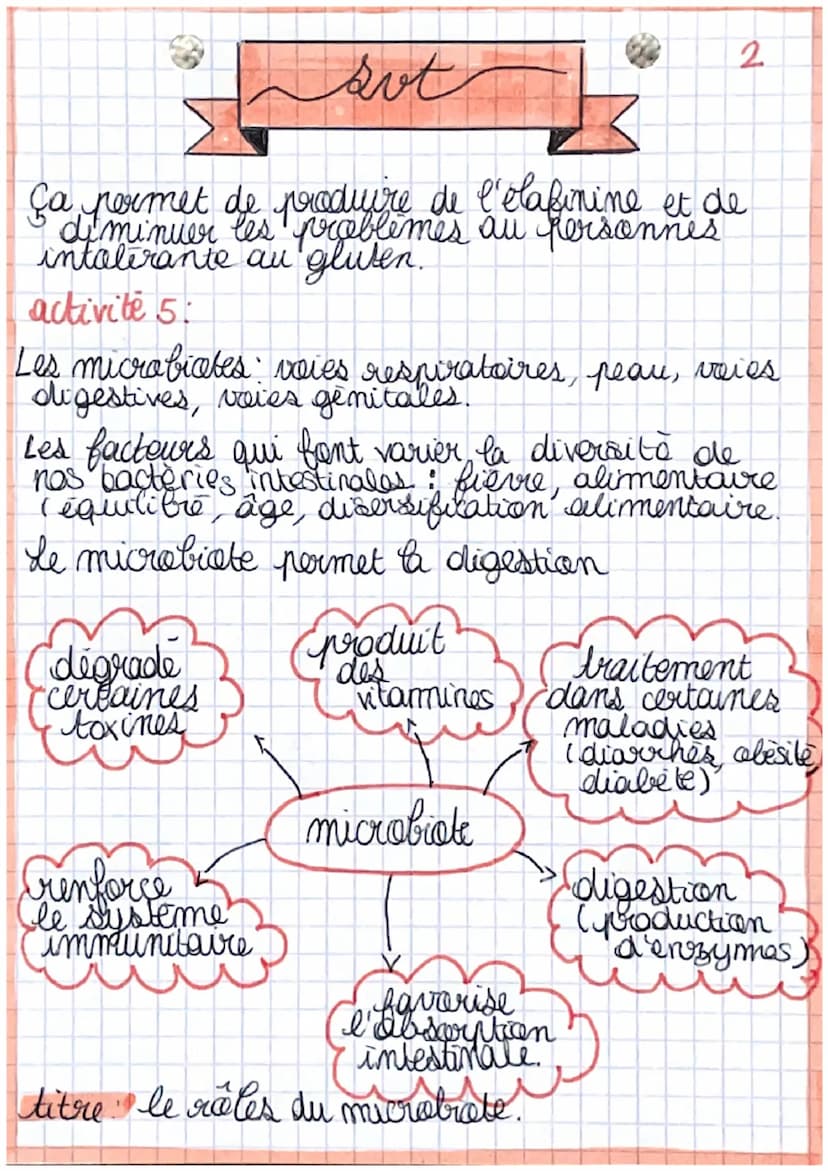 svt
2
Ça permet de produire de l'élafinine et de
diminuer les problèmes au personnes
intolérante au gluten.
activité 5:
Les microbiotes: voies respiratoires, peau, voies
digestives, voies génitales.
Les facteurs qui font varier la diversité de
nos bactéries intestinales : fièvre, alimentaire
(équilibré, âge, diversification alimentaire.
Le microbiote permet la digestion
dégradé
certaines
toxines
produit
des
vitamines
traitement
dans certaines
maladies
(diarrhés, obésité,
diabète)
microbiote
renforce
le système
immunitaire
digestion
(production
d'enzymes)
favorise
l'absorption
intestinale.
titre: le rôles du microbiote.